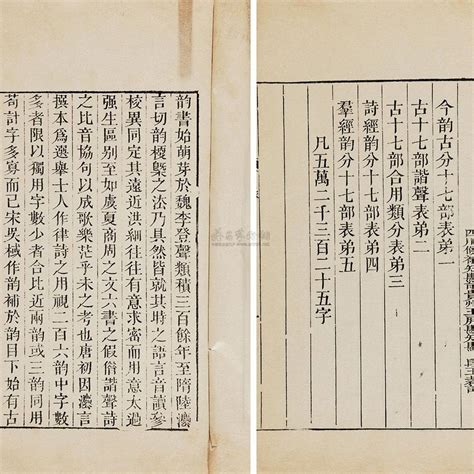 今韵古分十七部表弟一
古十七部諧聲表弟二
古十七部合用類分表弟三
詩經韵分十七部表弟四
羣經韵分十七部表弟五
凡五萬二千三百二十五字
韵書始萌芽於魏李登聲類積三百餘年至隋陸灋
言切韵梗槩之法乃具然皆就其時之語言音讀參
校異同定其遠近洪細往往有意求密而用意太過
强生區別至如虞夏商周之文六書之假借諧聲詩
之比音協句以成歌樂茫乎未之考也唐初因灋言
撰本爲選舉士人作律詩之用視二百六韵中字數
多者限以獨用字數少者合比近兩韵或三韵同用
苟計字多寡而已宋吳棫作韵補於韵目下始有古